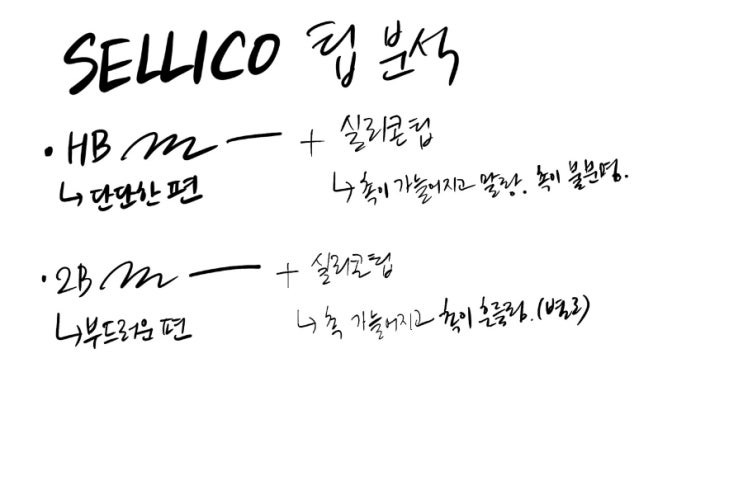 SELLICO 팁 분석
· HB + 실리콘팁
↳ 단단한 편
↳ 촉이 가늘어지고 말랑. 촉이 불분명.
· 2B + 실리콘팁
↳ 부드러운 편
↳ 촉 가늘어지고 촉이 흔들림. (별로)